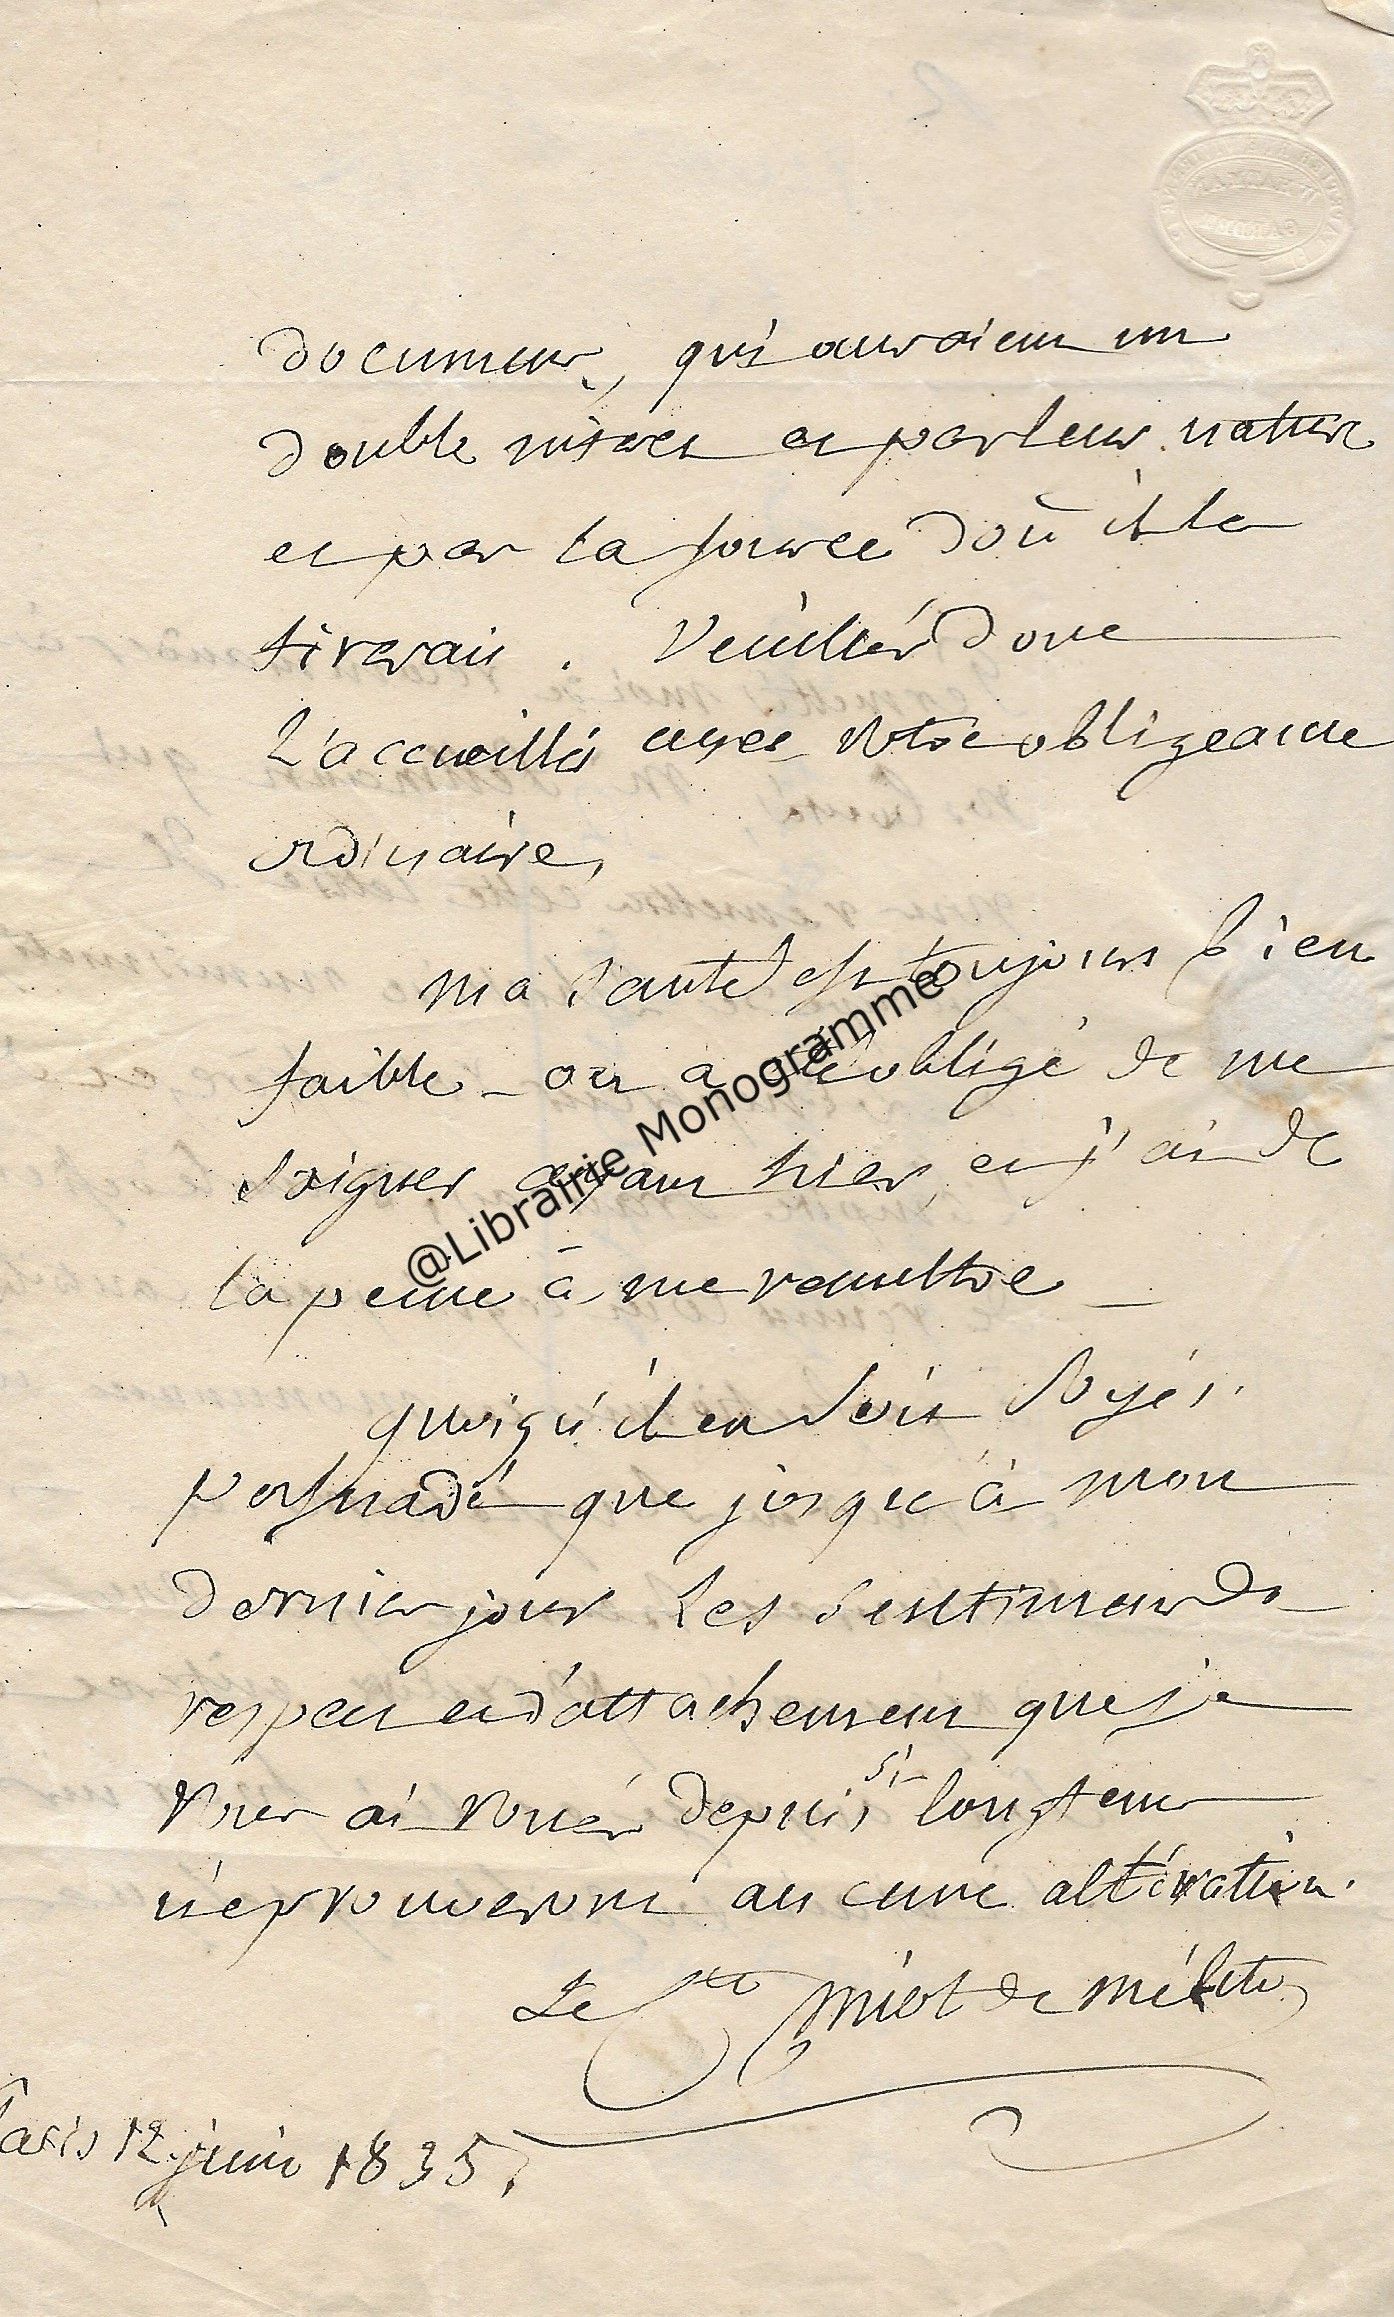 documens, qui auraient un
double intérêt et par leur nature
et par la source d'où il les
tirerait. Veuillés donc
l'accueillir avec votre obligeance
ordinaire,
ma santé est toujours bien
faible _ on a été obligé de me
soigner avant hier, et j'ai de
la peine à me remettre _
quoiqu'il en soit soyés
persuadé que jusqu'à mon
dernier jour les sentimens de
respect et d'attachement que je
vous ai voués depuis si longtems
n'eprouveront aucune altération.
Le Cte Miot de Mélito
Paris 12 juin 1835.
@Librairie Monogramme